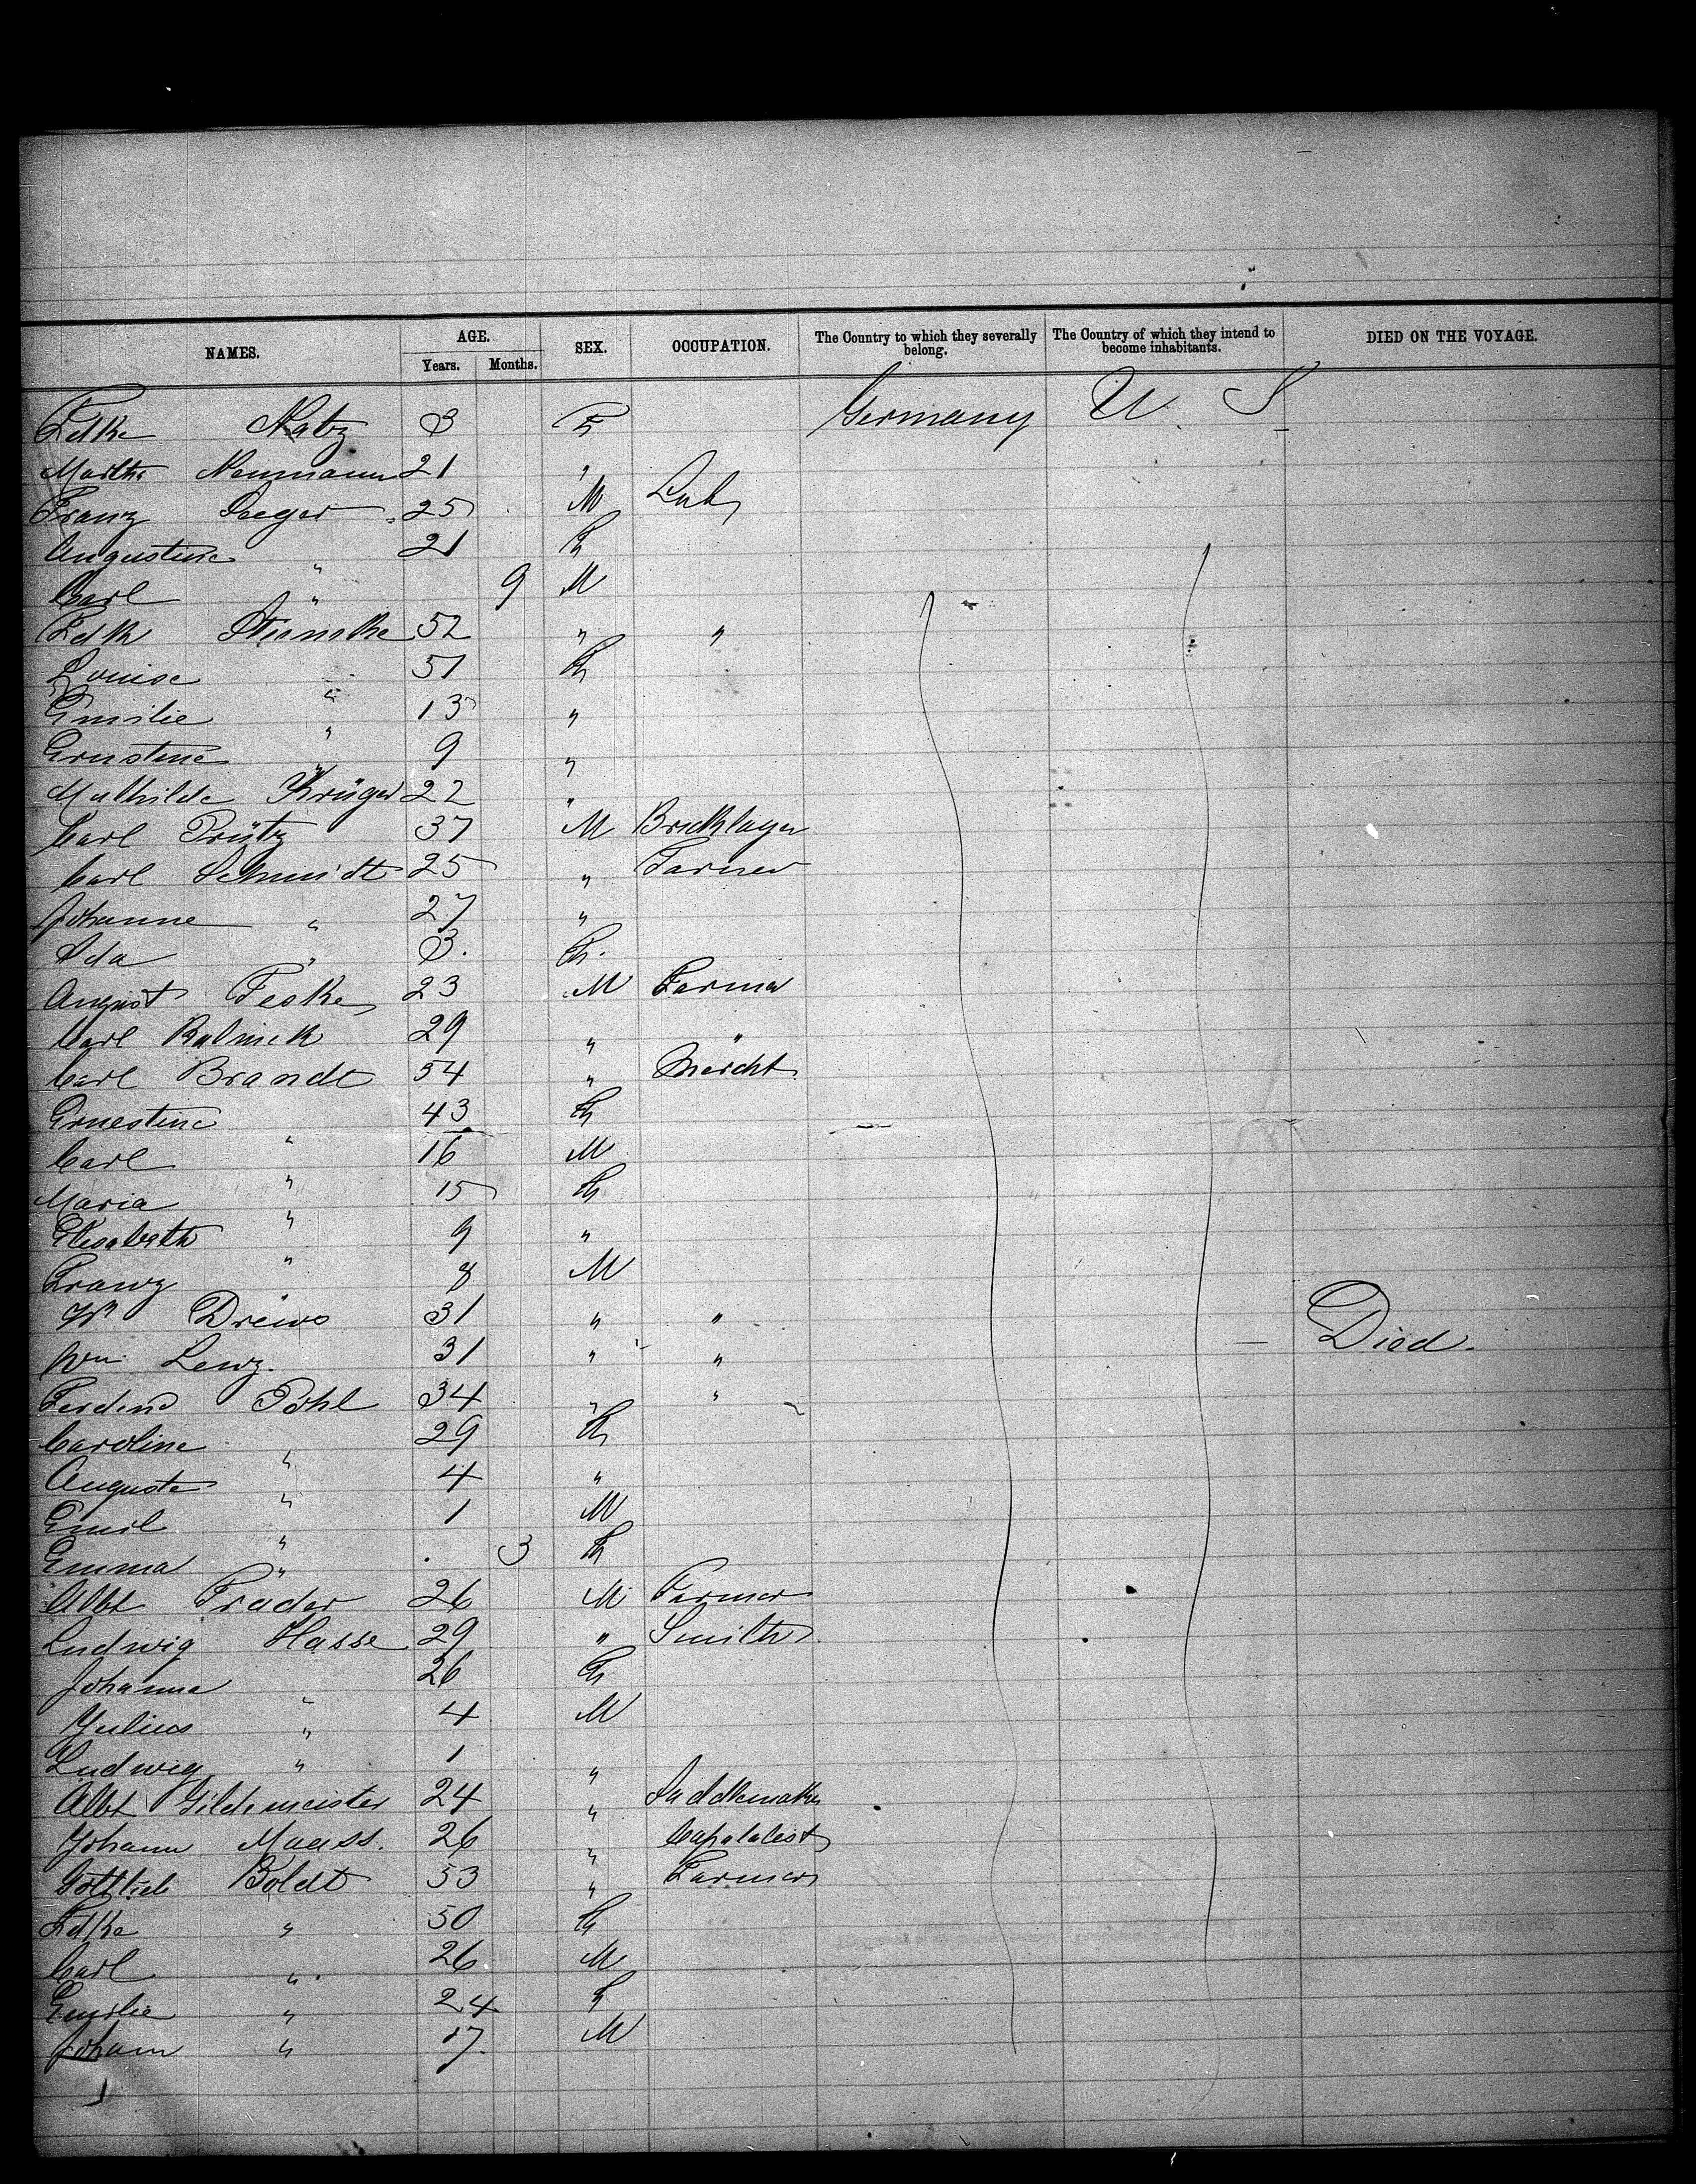 NAMES. AGE. SEX. OCCUPATION. The Country to which they severally belong. The Country of which they intend to become inhabitants. DIED ON THE VOYAGE.
Years. Months.
Fdke Natz 3 F Germany U S
Martha Neumann 21 "
Franz Seeger 25 M Lab
Augustine " 21 F
Carl " 9 M
Fdk 52 " "
Louise " 51 F
Emilie " 13 "
Ernstine " 9 "
Mathilde Krüger 22 "
Carl Prütz 37 M Bricklayer
Carl Schmidt 25 " Farmer
Johanne " 27 "
Ida " 3. F.
August Feske 23 M Farmer
Carl 29 " "
Carl Brandt 54 " Mercht
Ernestine " 43 F
Carl " 16 M
Maria " 15 F
Elisabeth " 9 "
Franz 8 M
Wm Drews 31 " "
Wm Lenz. 31 " " Died.
Ferdind Pohl 34 " "
Caroline " 29 F
Auguste " 4 "
Emil " 1 M
Emma " 3 F
Albt Prader 26 M Farmer
Ludwig Hasse 29 " Smith
Johanna " 26 F
Julius " 4 M
Ludwig " 1 "
Albt Gildemeister 24 " Saddlemaker
Johann Maass. 26 " Capatalist
Gottlieb Boldt 53 " Farmer
Fdke " 50 F
Carl " 26 M
Emilie " 24 F
Joham " 17. M